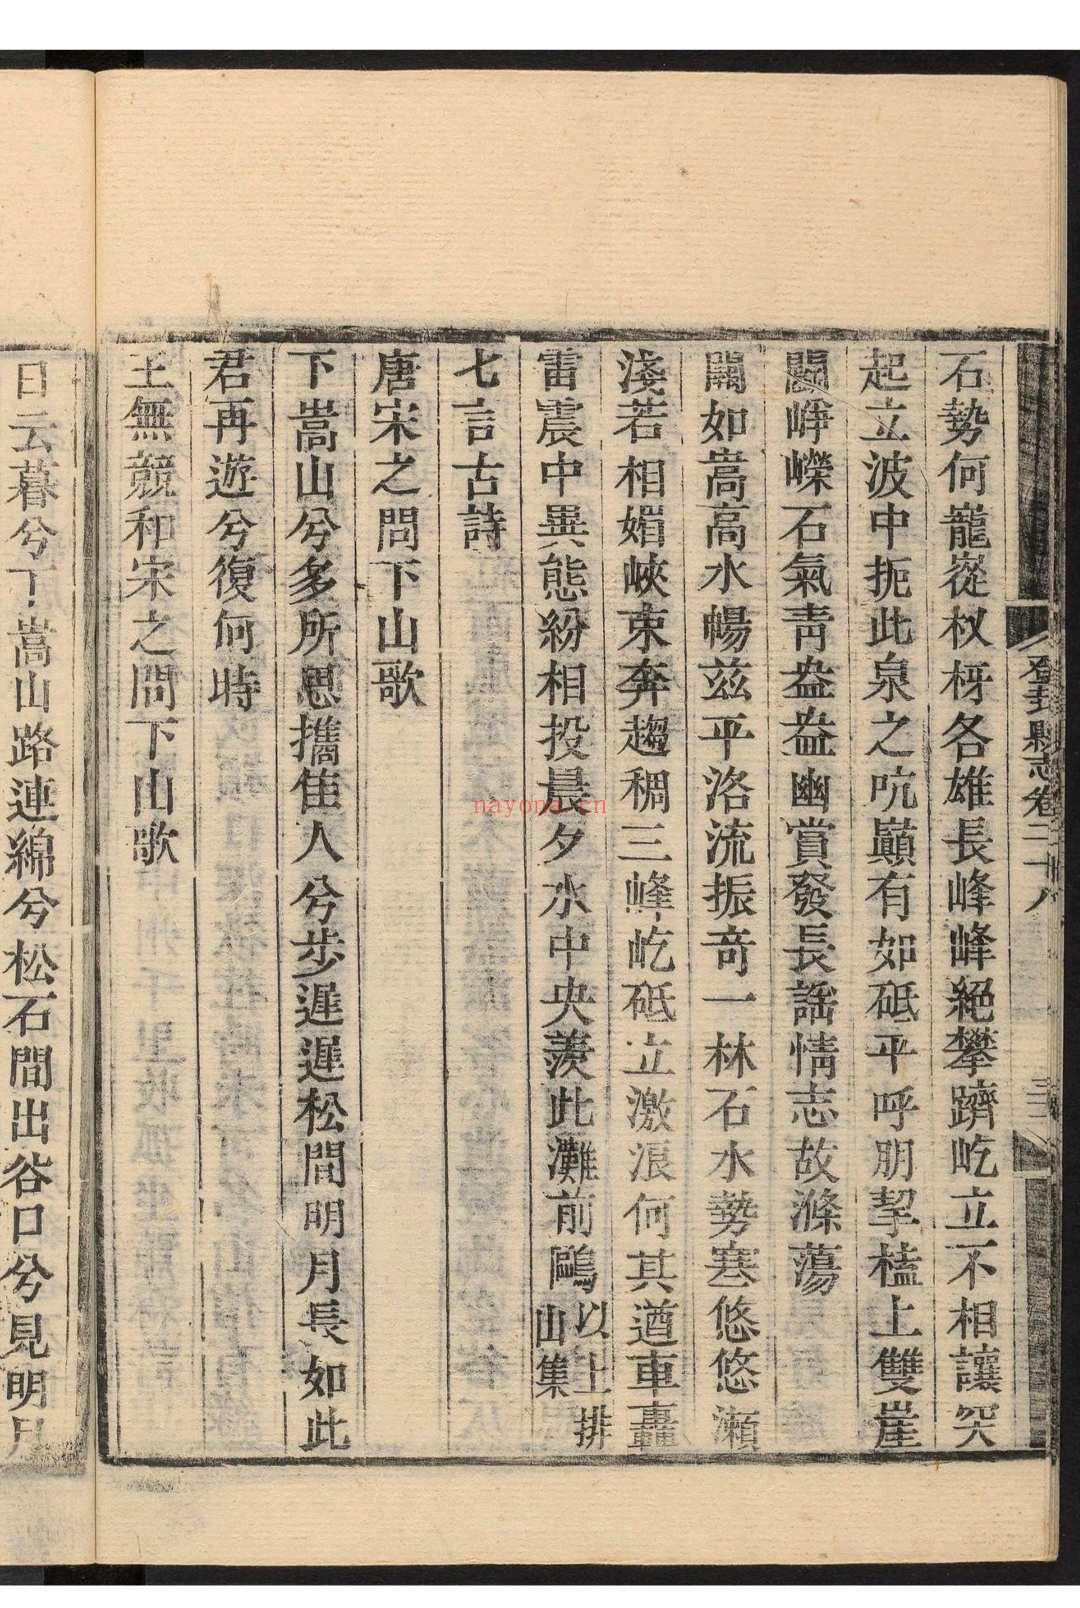 登封縣志卷二十八
石勢何龍嵸杈枒各雄長峰峰絕攀躋屹立不相讓突
起立波中扼此泉之吭巔有如砥平呼朋挈榼上雙崖
閼崢嶸石氣青盎盎幽賞發長謠情志故滌蕩
闕如嵩高水暢茲平洛流振奇一林石水勢塞悠悠瀨
淺若相媚峽束奔趨稠三峰屹砥立激浪何其遒車轟
雷震中異態紛相投晨夕水中央羨此灘前鷗以上排山集
七言古詩
唐宋之問下山歌
下嵩山兮多所思攜佳人兮步遲遲松間明月長如此
君再遊兮復何時
王無競和宋之問下山歌
日云暮兮下嵩山路連綿兮松石間出谷口兮見明月
nayona.cn